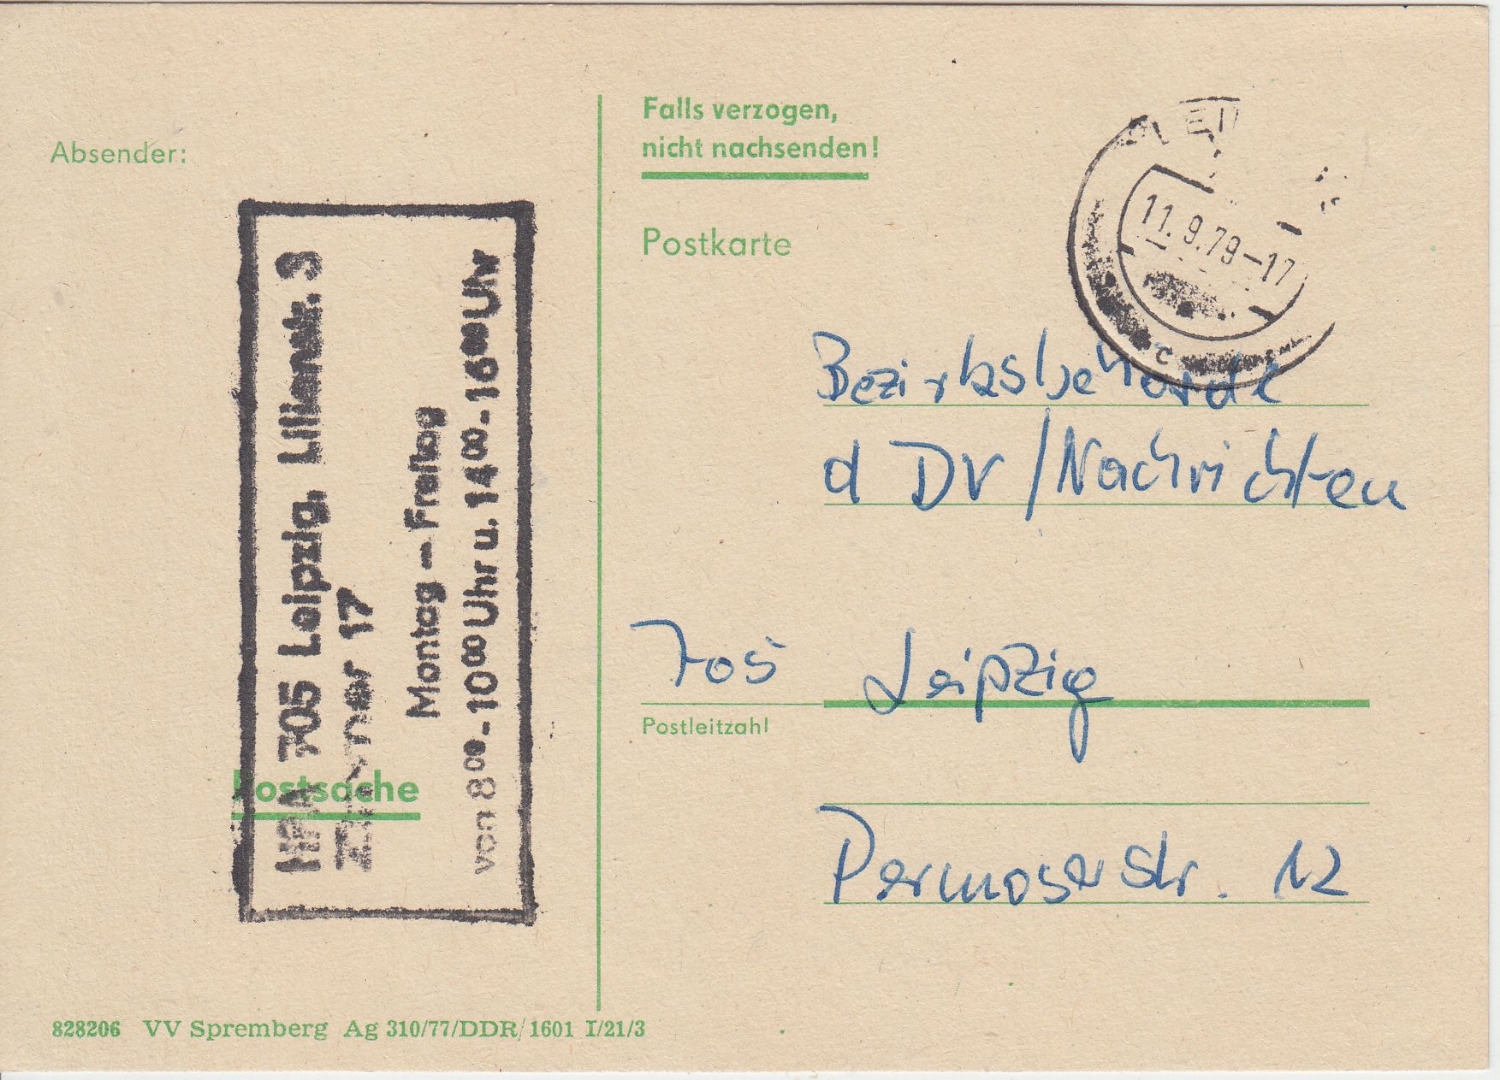 Absender:
HPA 705 Leipzig, Lilienstr. 3
Zimmer 17
Montag – Freitag
von 8⁰⁰-10⁰⁰ Uhr u. 14⁰⁰-16⁰⁰ Uhr
Postsache
828206 VV Spremberg Ag 310/77/DDR/1601 I/21/3
Falls verzogen,
nicht nachsenden!
Postkarte
11.9.79-17
c
Bezirksbehörde
d DV/Nachrichten
705 Leipzig
Postleitzahl
Permoserstr. 12